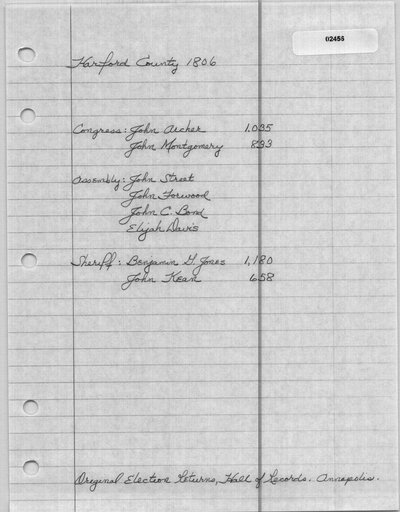 02455
Harford County 1806
Congress: John Archer 1,035
John Montgomery 833
Assembly: John Street
John Forwood
John C. Bond
Elijah Davis
Sheriff: Benjamin G. Jones 1,180
John Kean 658
Original Election Returns, Hall of Records. Annapolis.